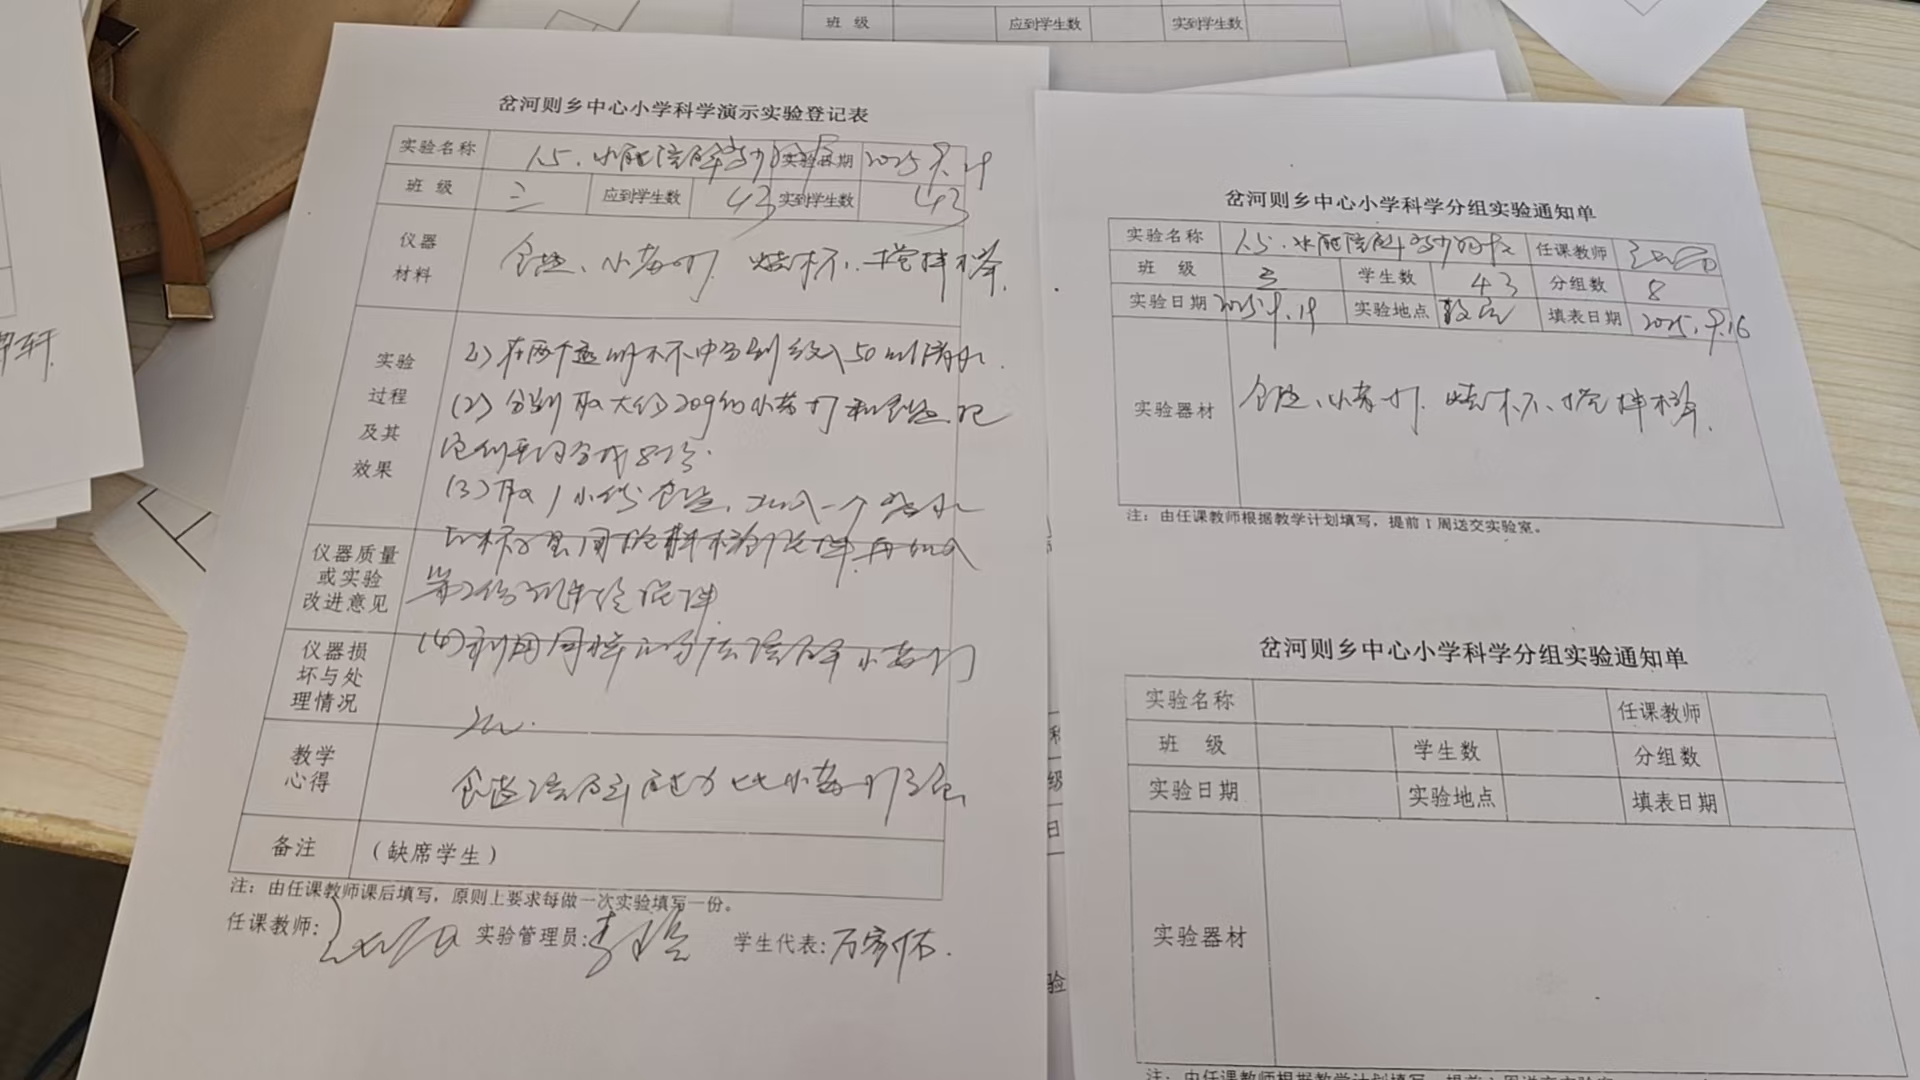 班 级 应到学生数 实到学生数
岔河则乡中心小学科学演示实验登记表
实验名称 1.5.水能溶解多少物质 实验日期 2025.9.19
班 级 三 应到学生数 43 实到学生数 43
仪器
材料
食盐、小苏打、烧杯、搅拌棒.
实验
过程
及其
效果
(1)在两个透明杯中分别倒入50ml清水.
(2)分别取大约20g的小苏打和食盐.把
它们平均分成8份.
(3)取1小份食盐,加入一个盛水
的杯子里,用搅拌棒搅拌,再加入
第2份
(4)利用同样的方法溶解小苏打
仪器质量
或实验
改进意见
仪器损
坏与处
理情况
无.
教学
心得
食盐溶解能力比小苏打强
备注 (缺席学生)
注:由任课教师课后填写,原则上要求每做一次实验填写一份。
任课教师: 实验管理员: 学生代表:
岔河则乡中心小学科学分组实验通知单
实验名称 1.5.水能溶解多少物质 任课教师
班 级 三 学生数 43 分组数 8
实验日期 2025.9.19 实验地点 教室 填表日期 2025.9.16
实验器材 食盐、小苏打、烧杯、搅拌棒.
注:由任课教师根据教学计划填写,提前1周送交实验室。
岔河则乡中心小学科学分组实验通知单
实验名称 任课教师
班 级 学生数 分组数
实验日期 实验地点 填表日期
实验器材
注:由任课教师根据教学计划填写,提前1周送交实验室